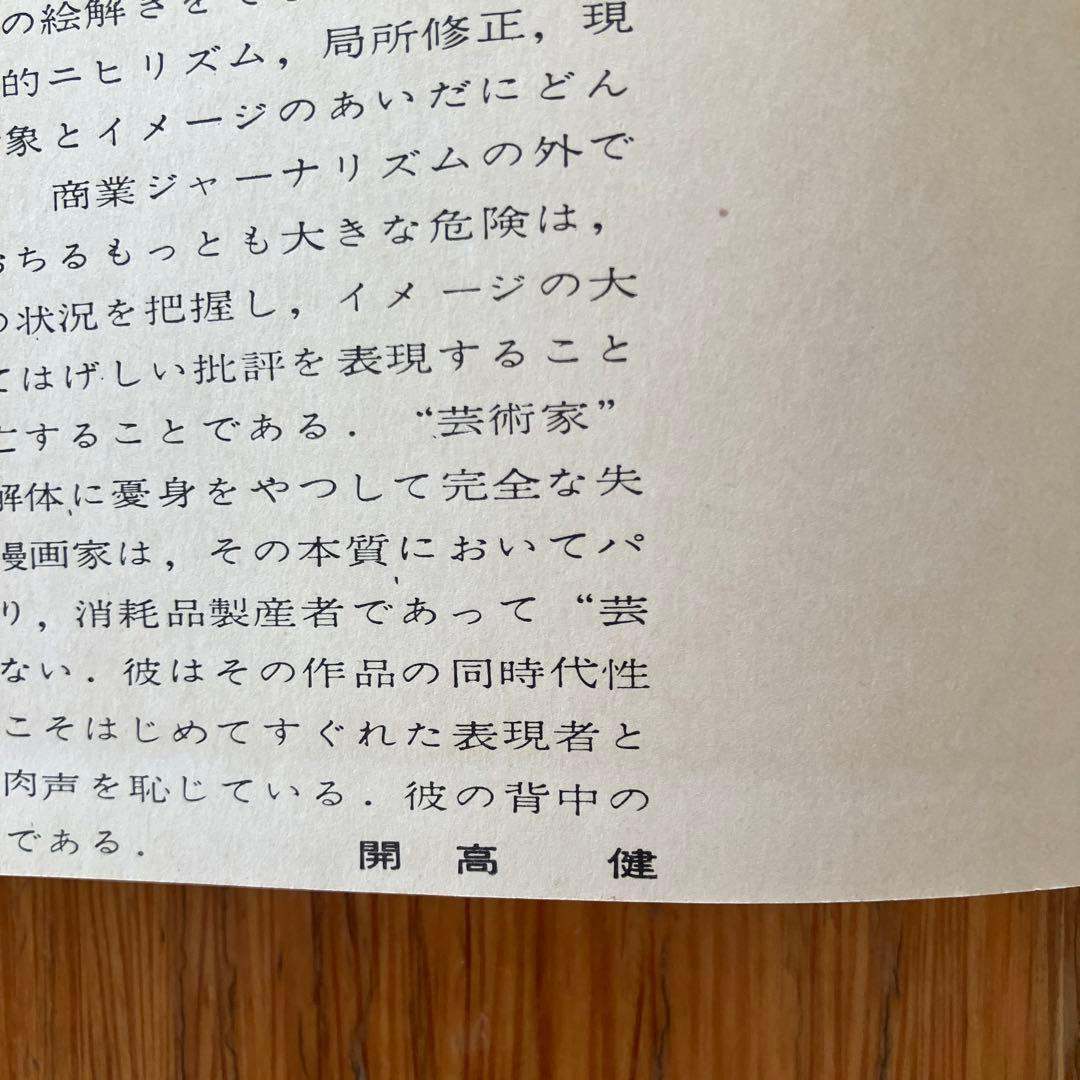 の絵解きを
的ニヒリズム，局所修正，現
象とイメージのあいだにどん
商業ジャーナリズムの外で
ちるもっとも大きな危険は，
状況を把握し，イメージの大
てはげしい批評を表現すること
することである．“芸術家”
解体に憂身をやつして完全な失
漫画家は，その本質においてパ
り，消耗品製産者であって“芸
ない．彼はその作品の同時代性
こそはじめてすぐれた表現者と
肉声を恥じている．彼の背中の
である．
開高健